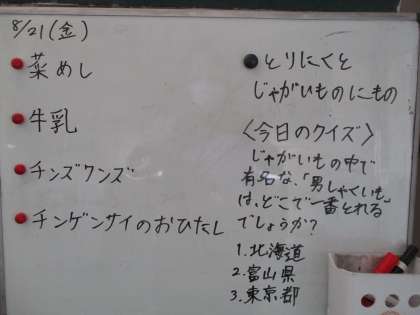 8/21(金)
菜めし
牛乳
チンズワンズ
チンゲンサイのおひたし
とりにくと
じゃがいものにもの
〈今日のクイズ〉
じゃがいもの中で
有名な、「男しゃくいも」
は、どこで一番とれる
でしょうか?
1.北海道
2.富山県
3.東京都